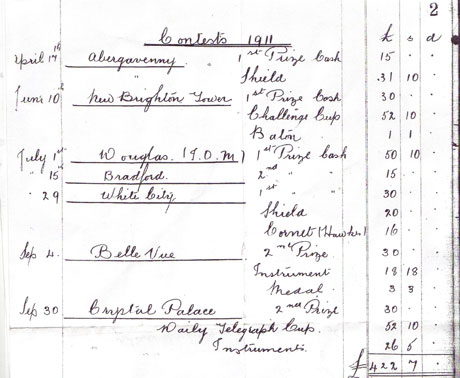 2
Contests 1911
£ s d
April 17th Abergavenny 1st Prize Cash 15 .
" Shield 31 10
June 10th New Brighton Tower 1st Prize Cash 30 .
Challenge Cup 52 10
Baton 1 1
July 1st Douglas. (I.O.M.) 1st Prize Cash 50 10
" 15th Bradford. 2nd " " 15 .
" 29 White City 1st " " 30
Shield 20
Cornet (Hawkes) 16
Sep 4. Belle Vue 2nd Prize. 30
Instrument 18 18
Medal 3 3
Sep 30 Crystal Palace 2nd Prize 30
Daily Telegraph Cup. 52 10
Instruments. 26 5
£ 422 7 .